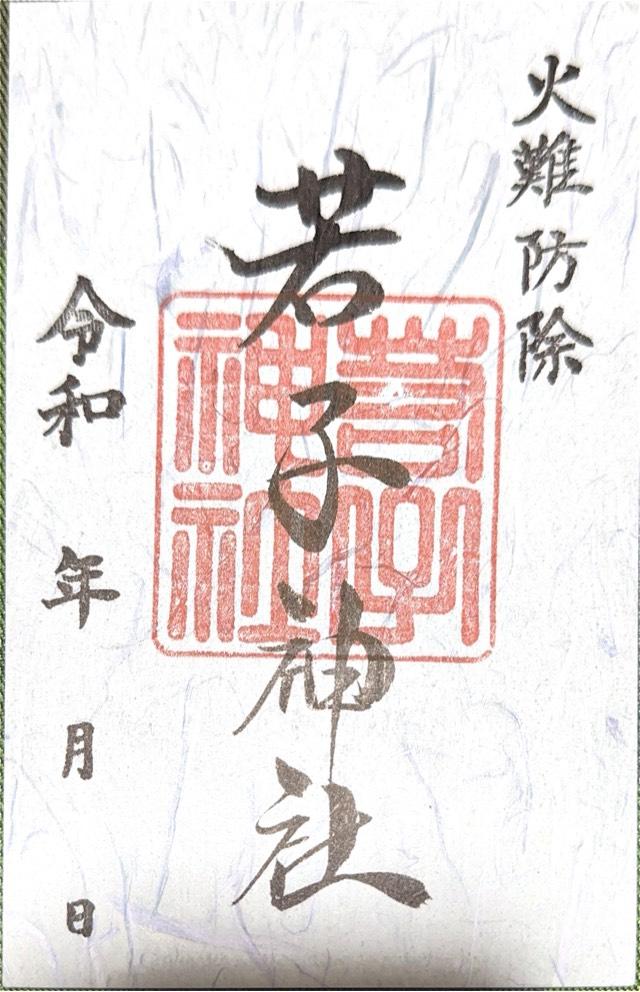 火難防除
若子神社
若子神社
令和 年 月 日